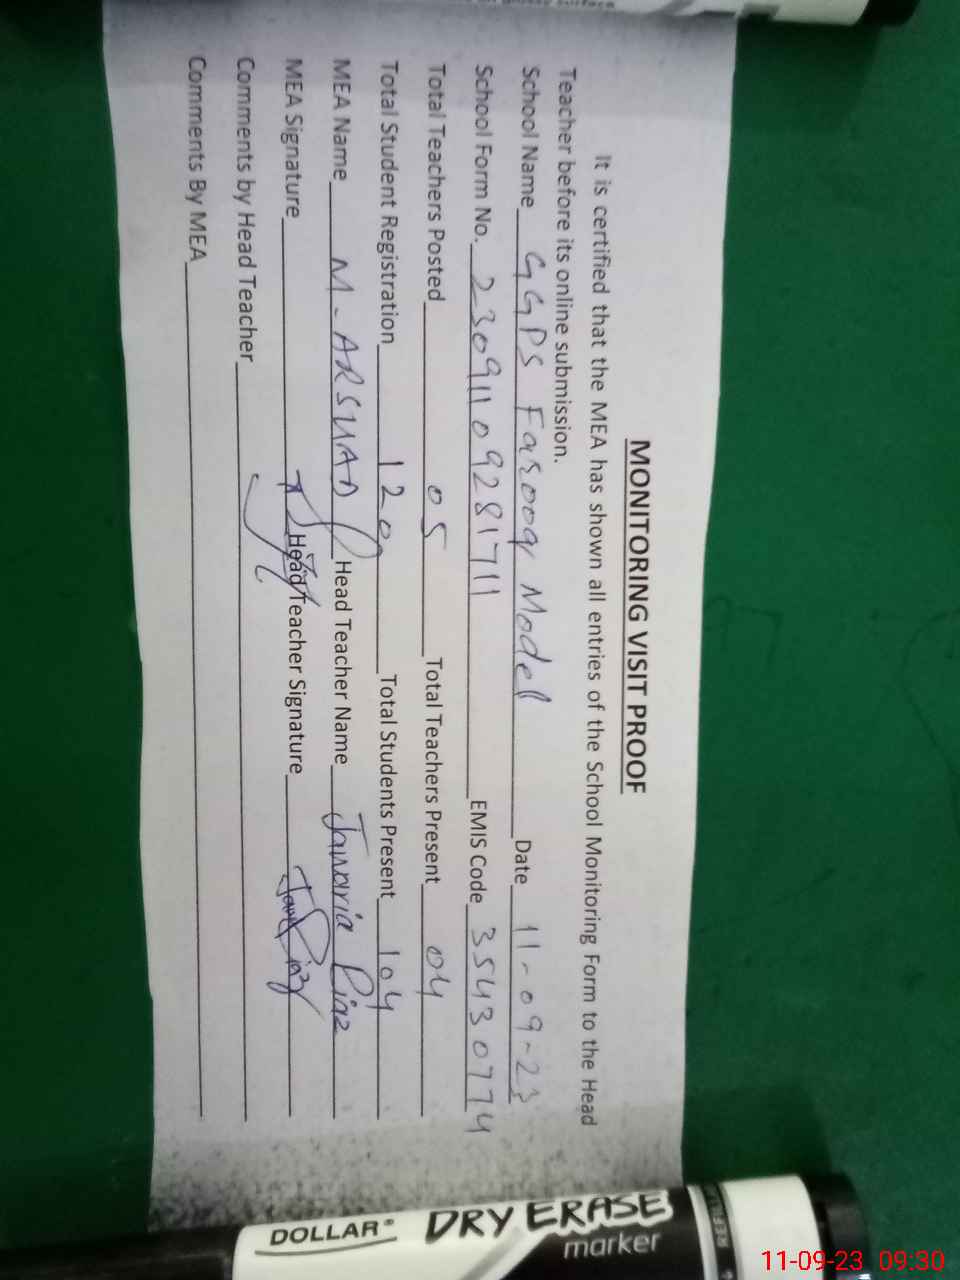 MONITORING VISIT PROOF
It is certified that the MEA has shown all entries of the School Monitoring Form to the Head
Teacher before its online submission.
School Name GGPS Farooq Model Date 11-09-23
School Form No. 23091109281711 EMIS Code 35430774
Total Teachers Posted 05 Total Teachers Present 04
Total Student Registration 120 Total Students Present 104
MEA Name M-ARSHAD Head Teacher Name Jawaria Riaz
MEA Signature Head Teacher Signature
Comments by Head Teacher
Comments By MEA
DOLLAR®
DRY ERASE
marker
11-09-23 09:30